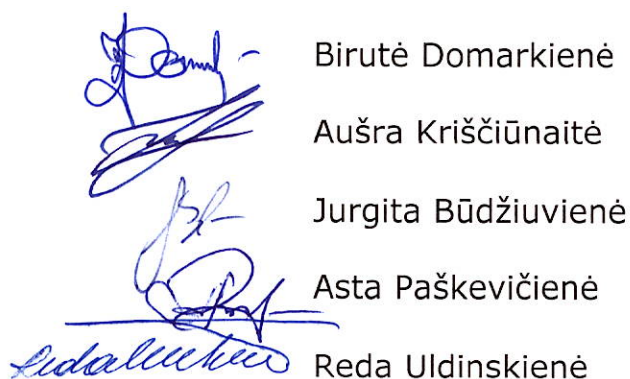 Birutė Domarkienė
Aušra Kriščiūnaitė
Jurgita Būdžiuvienė
Asta Paškevičienė
Reda Uldinskienė